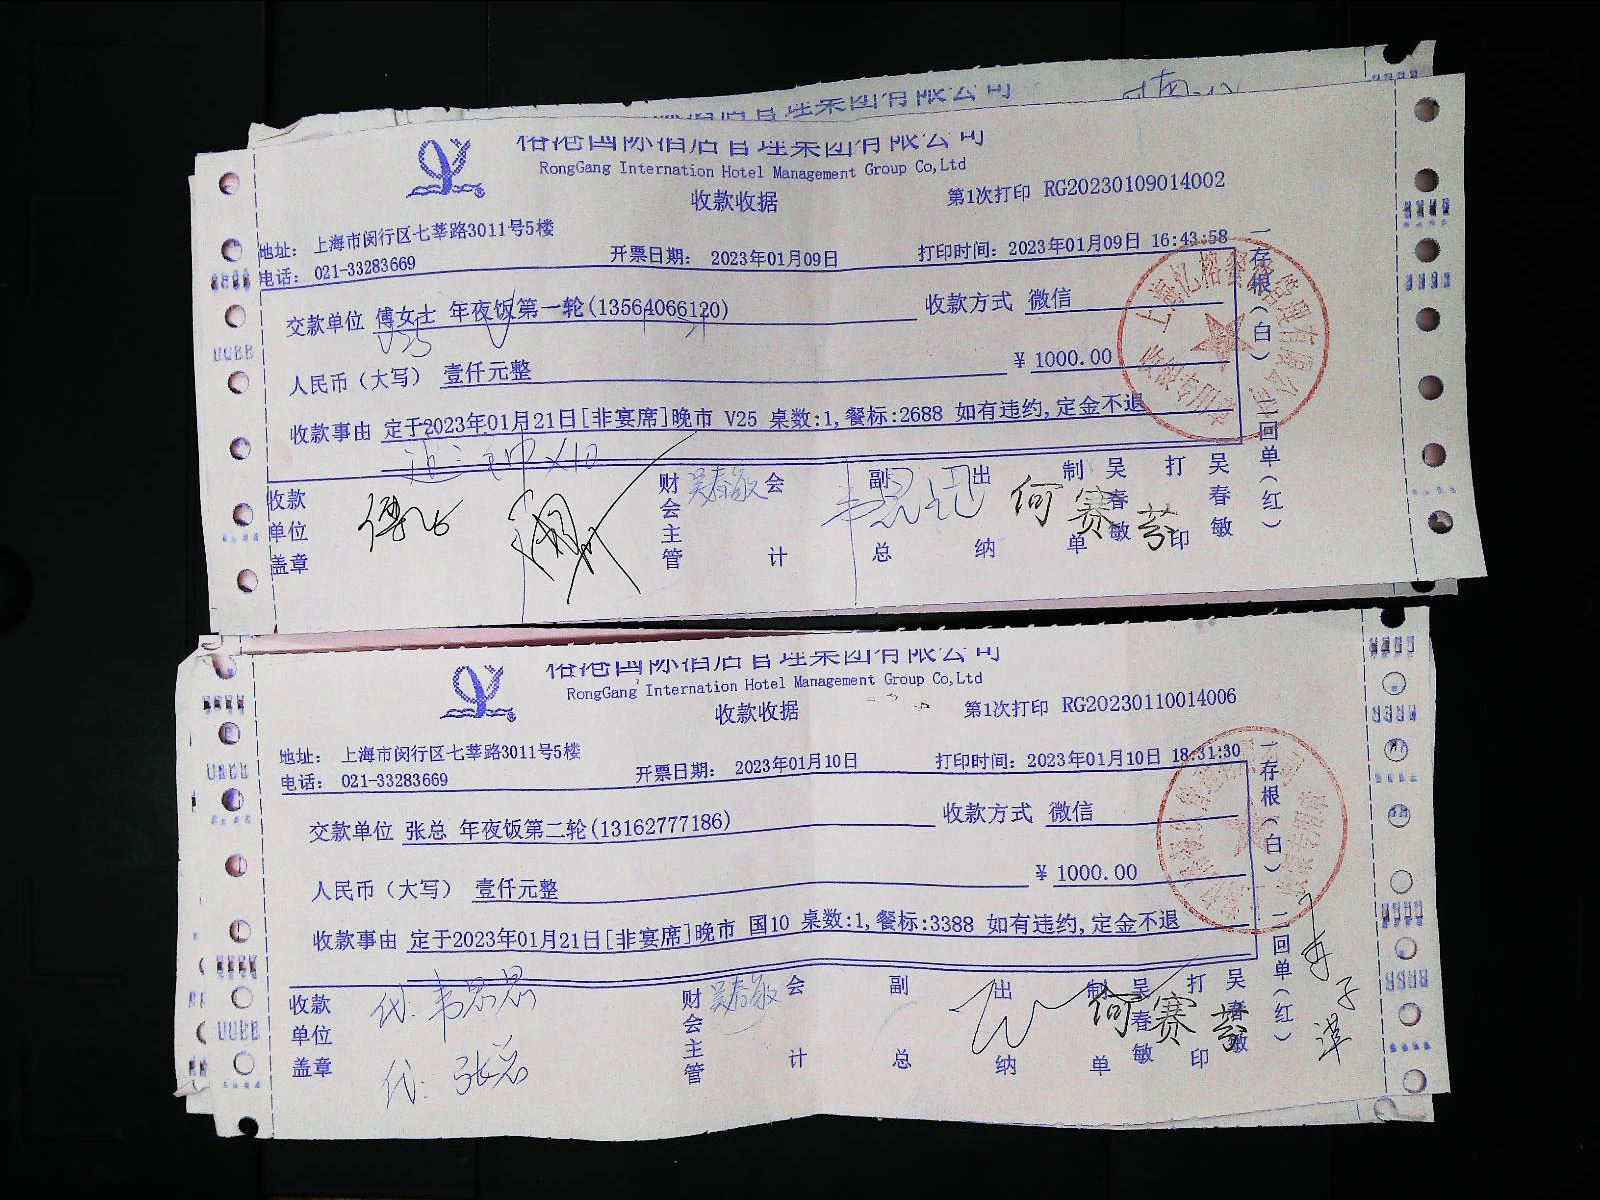 国际酒店管理集团有限公司
RongGang Internation Hotel Management Group Co,Ltd
收款收据
第1次打印 RG20230109014002
地址： 上海市闵行区七莘路3011号5楼
电话： 021-33283669
开票日期： 2023年01月09日
打印时间：2023年01月09日 16:43:58
交款单位 傅女士 年夜饭第一轮(13564066120)
收款方式 微信
V25
人民币（大写） 壹仟元整
￥1000.00
收款事由 定于2023年01月21日[非宴席]晚市 V25 桌数:1,餐标:2688 如有违约,定金不退
收款单位盖章
财会主管 吴春敏
会计
副总
出纳 何赛芬
制单 吴春敏
打印 吴春敏
一存根（白） 二回单（红）
国际酒店管理集团有限公司
RongGang Internation Hotel Management Group Co,Ltd
收款收据
第1次打印 RG20230110014006
地址： 上海市闵行区七莘路3011号5楼
电话： 021-33283669
开票日期： 2023年01月10日
打印时间：2023年01月10日 18:31:30
交款单位 张总 年夜饭第二轮(13162777186)
收款方式 微信
人民币（大写） 壹仟元整
￥1000.00
收款事由 定于2023年01月21日[非宴席]晚市 国10 桌数:1,餐标:3388 如有违约,定金不退
收款单位盖章
代:
代: 张总
财会主管 吴春敏
会计
副总
出纳
制单 吴春敏
何赛芬
打印 吴春敏
一存根（白） 二回单（红）